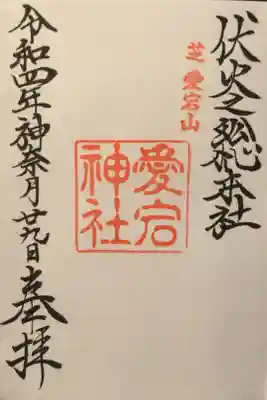 伏火之総本社
芝 愛宕山
愛宕
神社
令和四年神奈月廿九日土奉拝